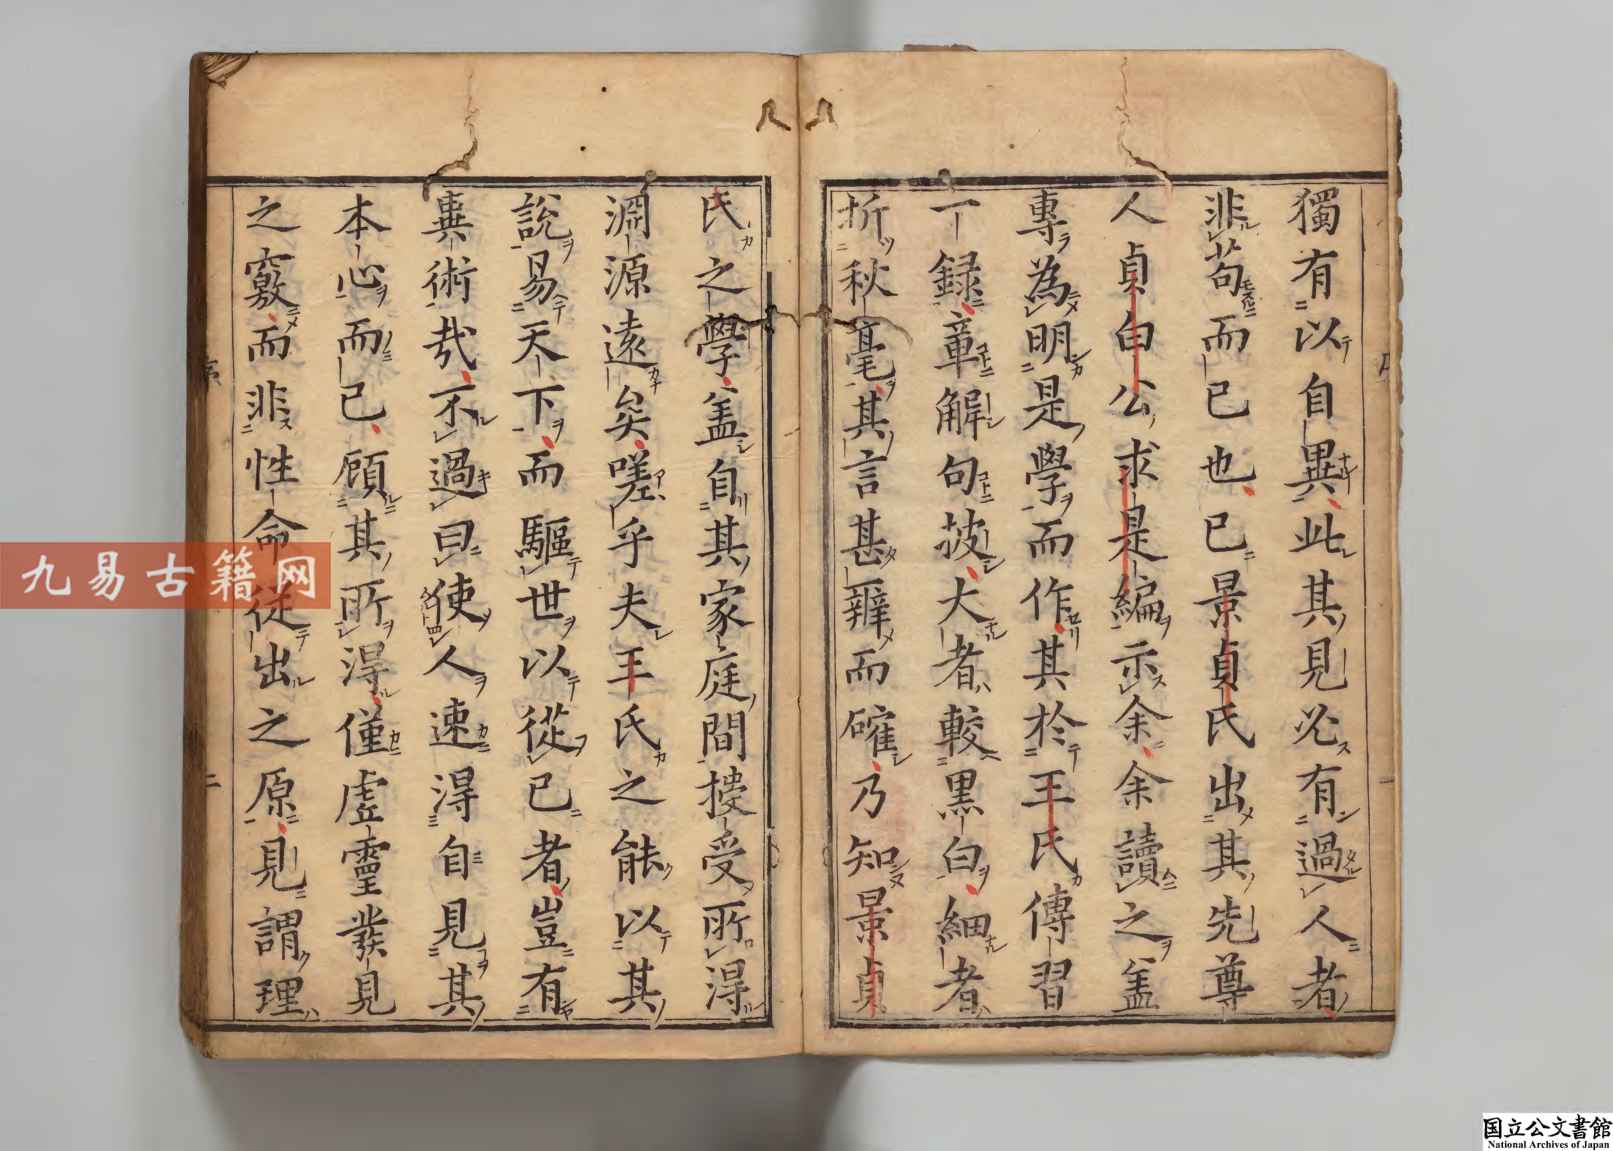 獨有以自異此其見必有過人者
非苟而已也已景貞氏出其先尊
人貞白公求是編示余余讀之盖
專為明是學而作其於王氏傳習
一録章解句披大者較黒白細者
折秋毫其言甚辨而確乃知景貞
氏之學盖自其家庭間授受所得
淵源遠矣嗟乎夫王氏之能以其
說易天下而驅世以從已者豈有
異術哉不過曰使人速得自見其
本心而已顧其所得僅虚靈發見
之竅而非性命從出之原見謂理
序
二
九易古籍网
国立公文書館
National Archives of Japan